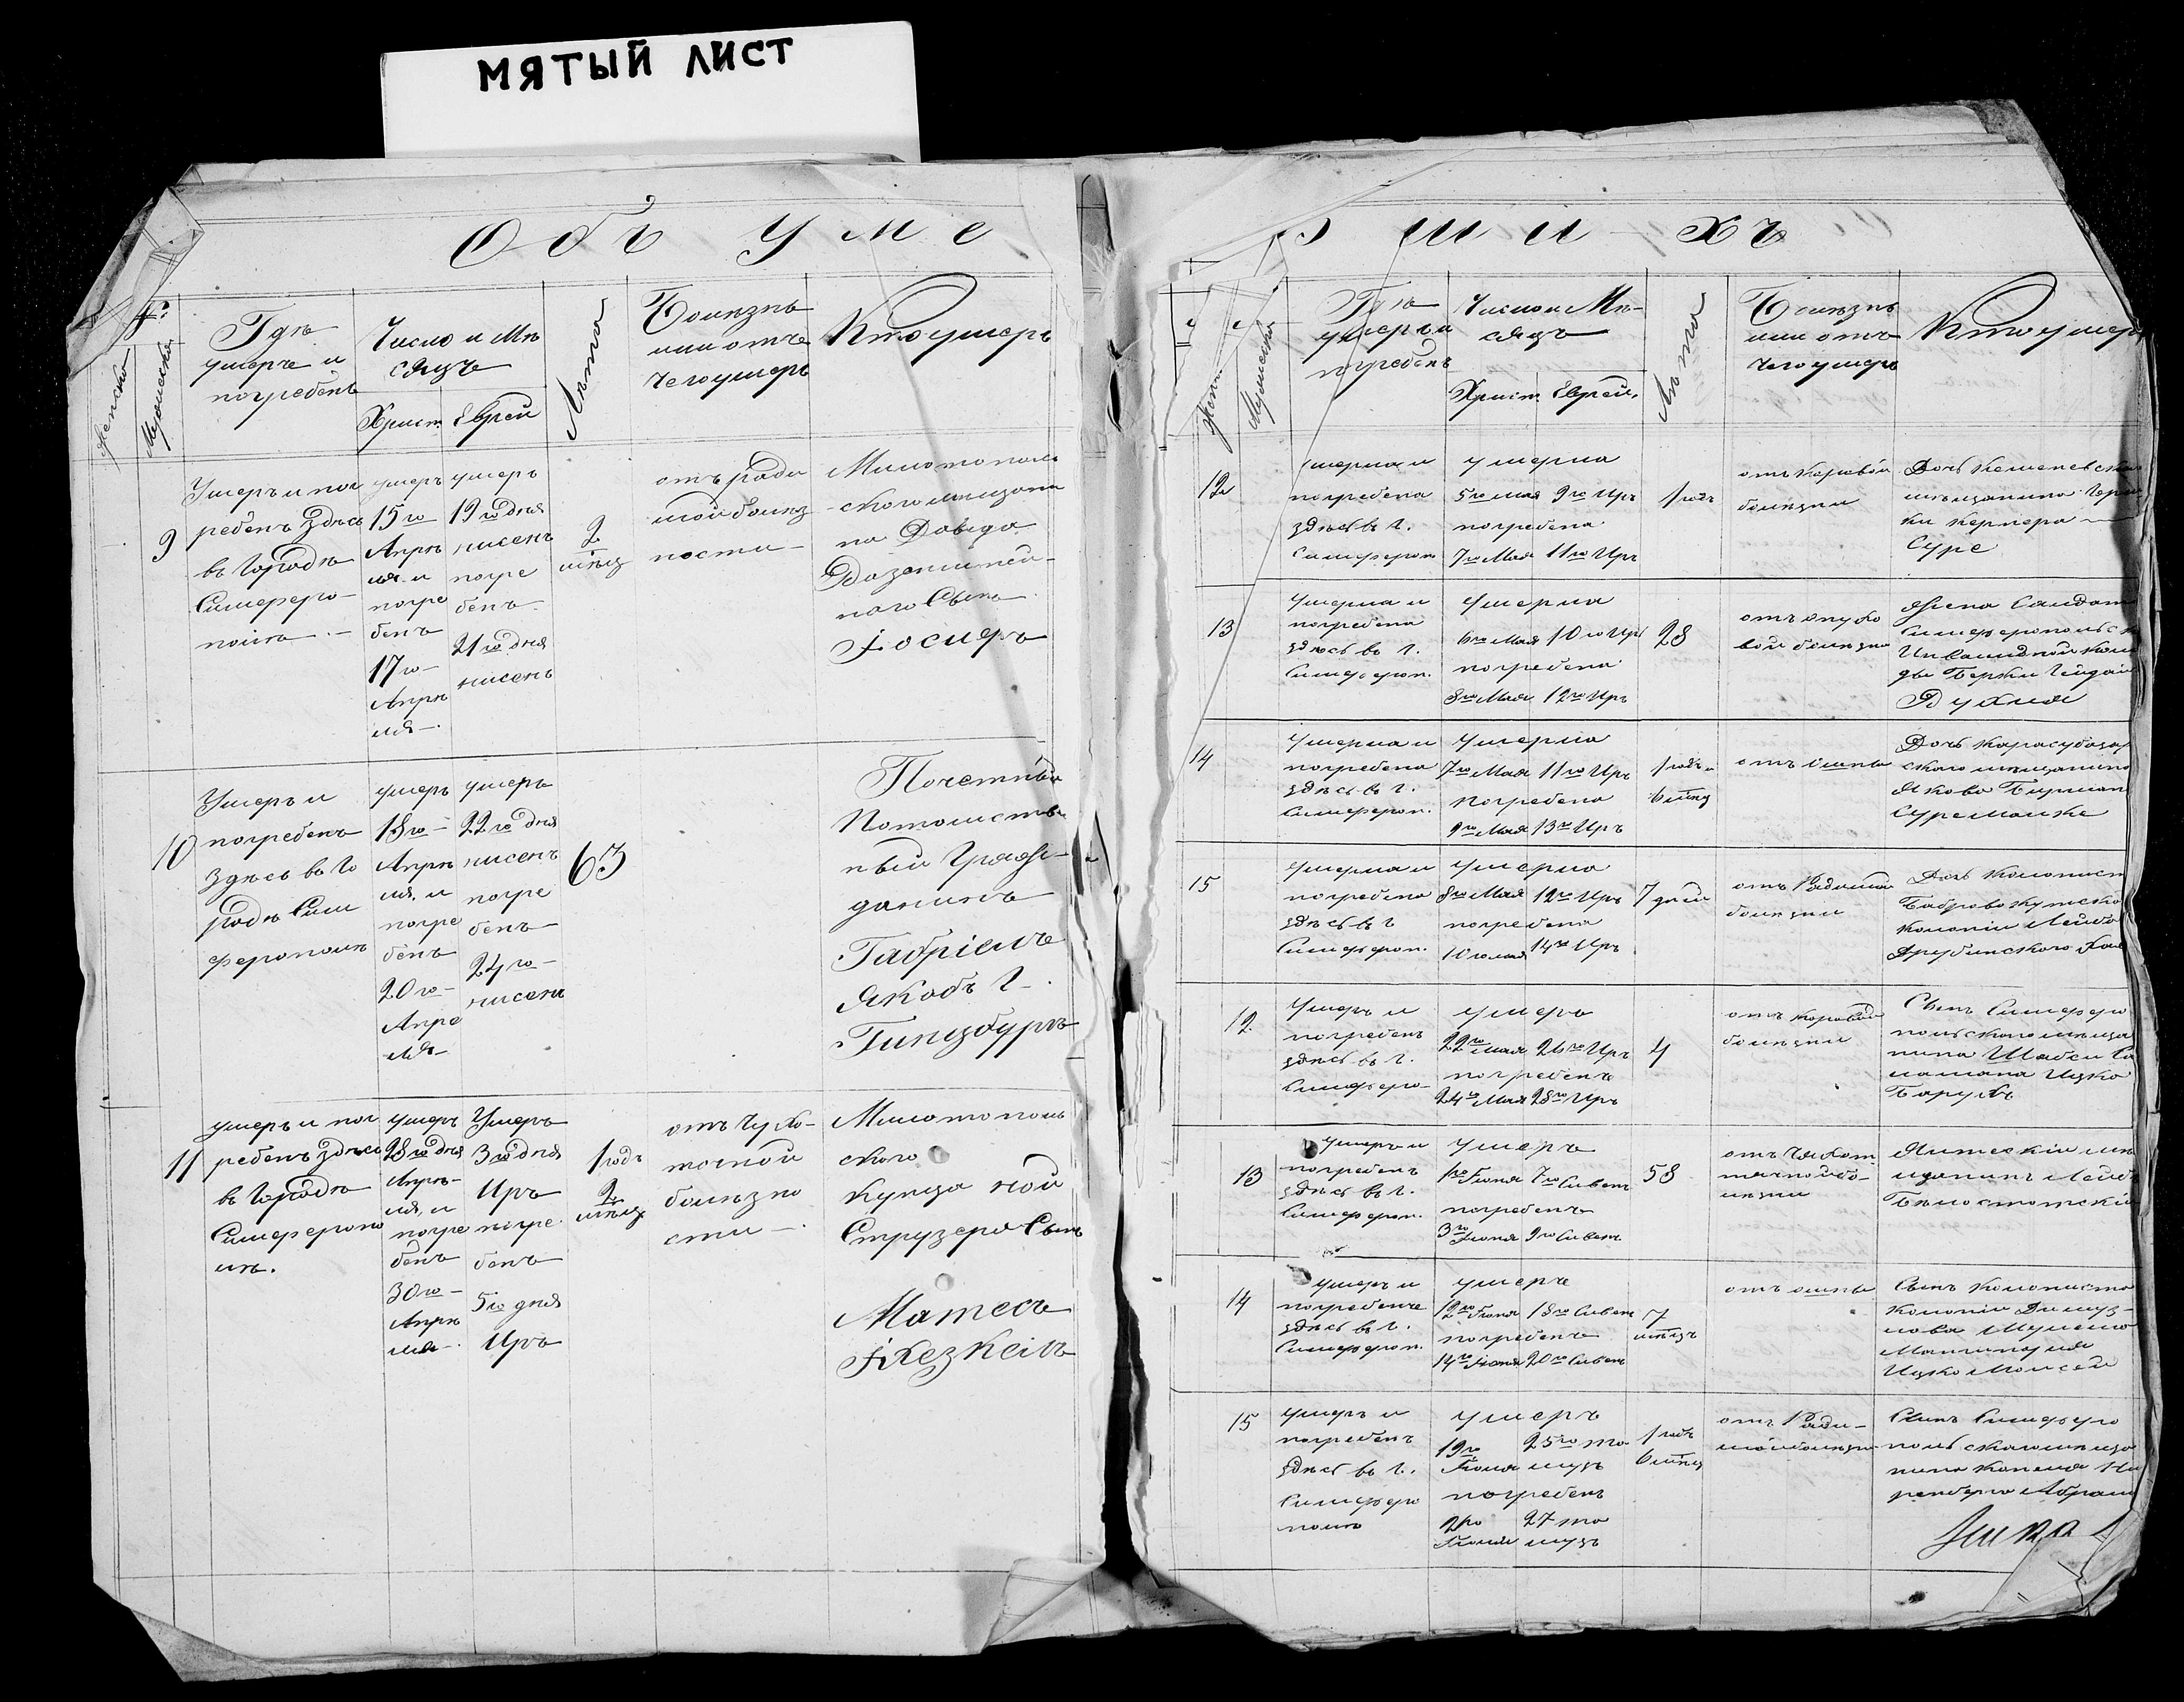 МЯТЫЙ ЛИСТ
Объ уме
№
Женско
Мужеско
Гдѣ
умеръ и
погребенъ
Число и Мѣ
сяцъ
Христ.
Еврей
Лѣта
Болѣзнь
или отъ
чего умеръ
Кто умеръ
9
Умеръ и пог
ребенъ здѣсь
въ Городѣ
Симферо-
полѣ.-
умеръ
15го
Апрѣ
ля и
погре
бенъ
17го-
Апрѣ
ля-.
умеръ
19го дня
нисенъ
погре
бенъ
21го дня
нисенъ
2
мѣсц
отъ роди
мой болѣз
ности-
Милотополь
-ского мѣщани
на Довида
ного Сынъ
Іосифъ
10
Умеръ и
погребенъ
здѣсь въ Го
родѣ Сим
ферополѣ
умеръ
18го-
Апрѣ
ля, и
погре
бенъ
20го-
Апре
ля-
умеръ
22го дня
нисенъ
погре
бенъ
24го-
нисенъ
63
Почетный
Потомствен
ный Граж-
данинъ
Габріель
Якобъ Г-.
Гинцбургъ
11
умеръ и пог
ребенъ здѣсь
въ Городѣ
Симферопо
лѣ.
умеръ
28го дня
Апрѣ-
ля, и
погре
бенъ
30го-
Апрѣ
ля-.
Умеръ
3го дня
Иръ
погре
бенъ
5го дня
Иръ
1 годъ
2
мѣсц
отъ Чухо-
точной
болѣзно
сти-.
Милотополь
ского
купца ной
Струзера Сынъ
Матесъ
Іхезкель
шихъ
Женс
Мужеско
Гдѣ
умеръ и
погребенъ
Число и Мѣ-
сяцъ
Христ.
Еврей.
Лѣта
Болѣзнь
или отъ
чего умеръ
Кто умеръ
12
Умерла и
погребена
здѣсь въ г.
Симфероп.
умерла
5го Мая 9го Иръ
погребена
7го Мая 11го Иръ
1 годъ
отъ Коровой
болѣзни
Дочь Кешеневска
мѣщанина Герш
ки Кернера-
Суре
13
Умерла и
погребена
здѣсь въ г.
Симфероп.
Умерла
6го Мая 10го Иръ
погребена
8го Мая 12го Иръ
28
отъ опухо
вой болѣзни
Жена Солдат
Симферопольск
Инвалидной Коман
ды Берки Гейдай
Духня
14
Умерла и
погребена
здѣсь въ г.
Симфероп.
Умерла
7го Мая 11го Иръ
погребена
9го Мая 13го Иръ
1 годъ и
6 мѣсц
отъ оспы
Дочь Карасубазар
ского мѣщанина
Якова Бирман
Суре Малке
15
Умерла и
погребена
здѣсь въ г
Симфероп.
Умерла
8го Мая 12го Иръ
погребена
10го мая 14го Иръ
7 дней
отъ Родимой
болѣзни
Дочь Колонист
Боброво кутской
колоніи Лейба
12
Умеръ и
погребенъ
здѣсь въ г.
Симферо-
умеръ
22го мая 26го Иръ
погребенъ
24го Мая 28го Иръ
4
отъ Коровой
болѣзни
Сынъ Симферо
польскаго мѣща
нина Шабси Со
ломона Ицко
Борухъ
13
Умеръ и
погребенъ
здѣсь въ г.
Симфероп.
умеръ
1го Іюня 7го Сивенъ
погребенъ
3го Іюня 9го Сивенъ
58
отъ Чахот
точной бо-
лѣзни
мѣ
щанинъ Лейб
Бѣлостотскій
14
Умеръ и
погребенъ
здѣсь въ г.
Симфероп.
умеръ
12го Іюня 18го Сивенъ
погребенъ
14го Іюня 20го Сивенъ
7
мѣсцъ
отъ оспы
Сынъ Колониста
колоніи
Ицко Моисей
15
умеръ и
погребенъ
здѣсь въ г.
Симферо
полѣ
умеръ
19го 25го та
Іюня музъ
погребенъ
21го 27 та
Іюня музъ
1 годъ
6 мѣсц
отъ Роди-
мой болѣзни
Сынъ Симферо
польскаго мѣща
нина Копеля Ни
ренберга Абрам